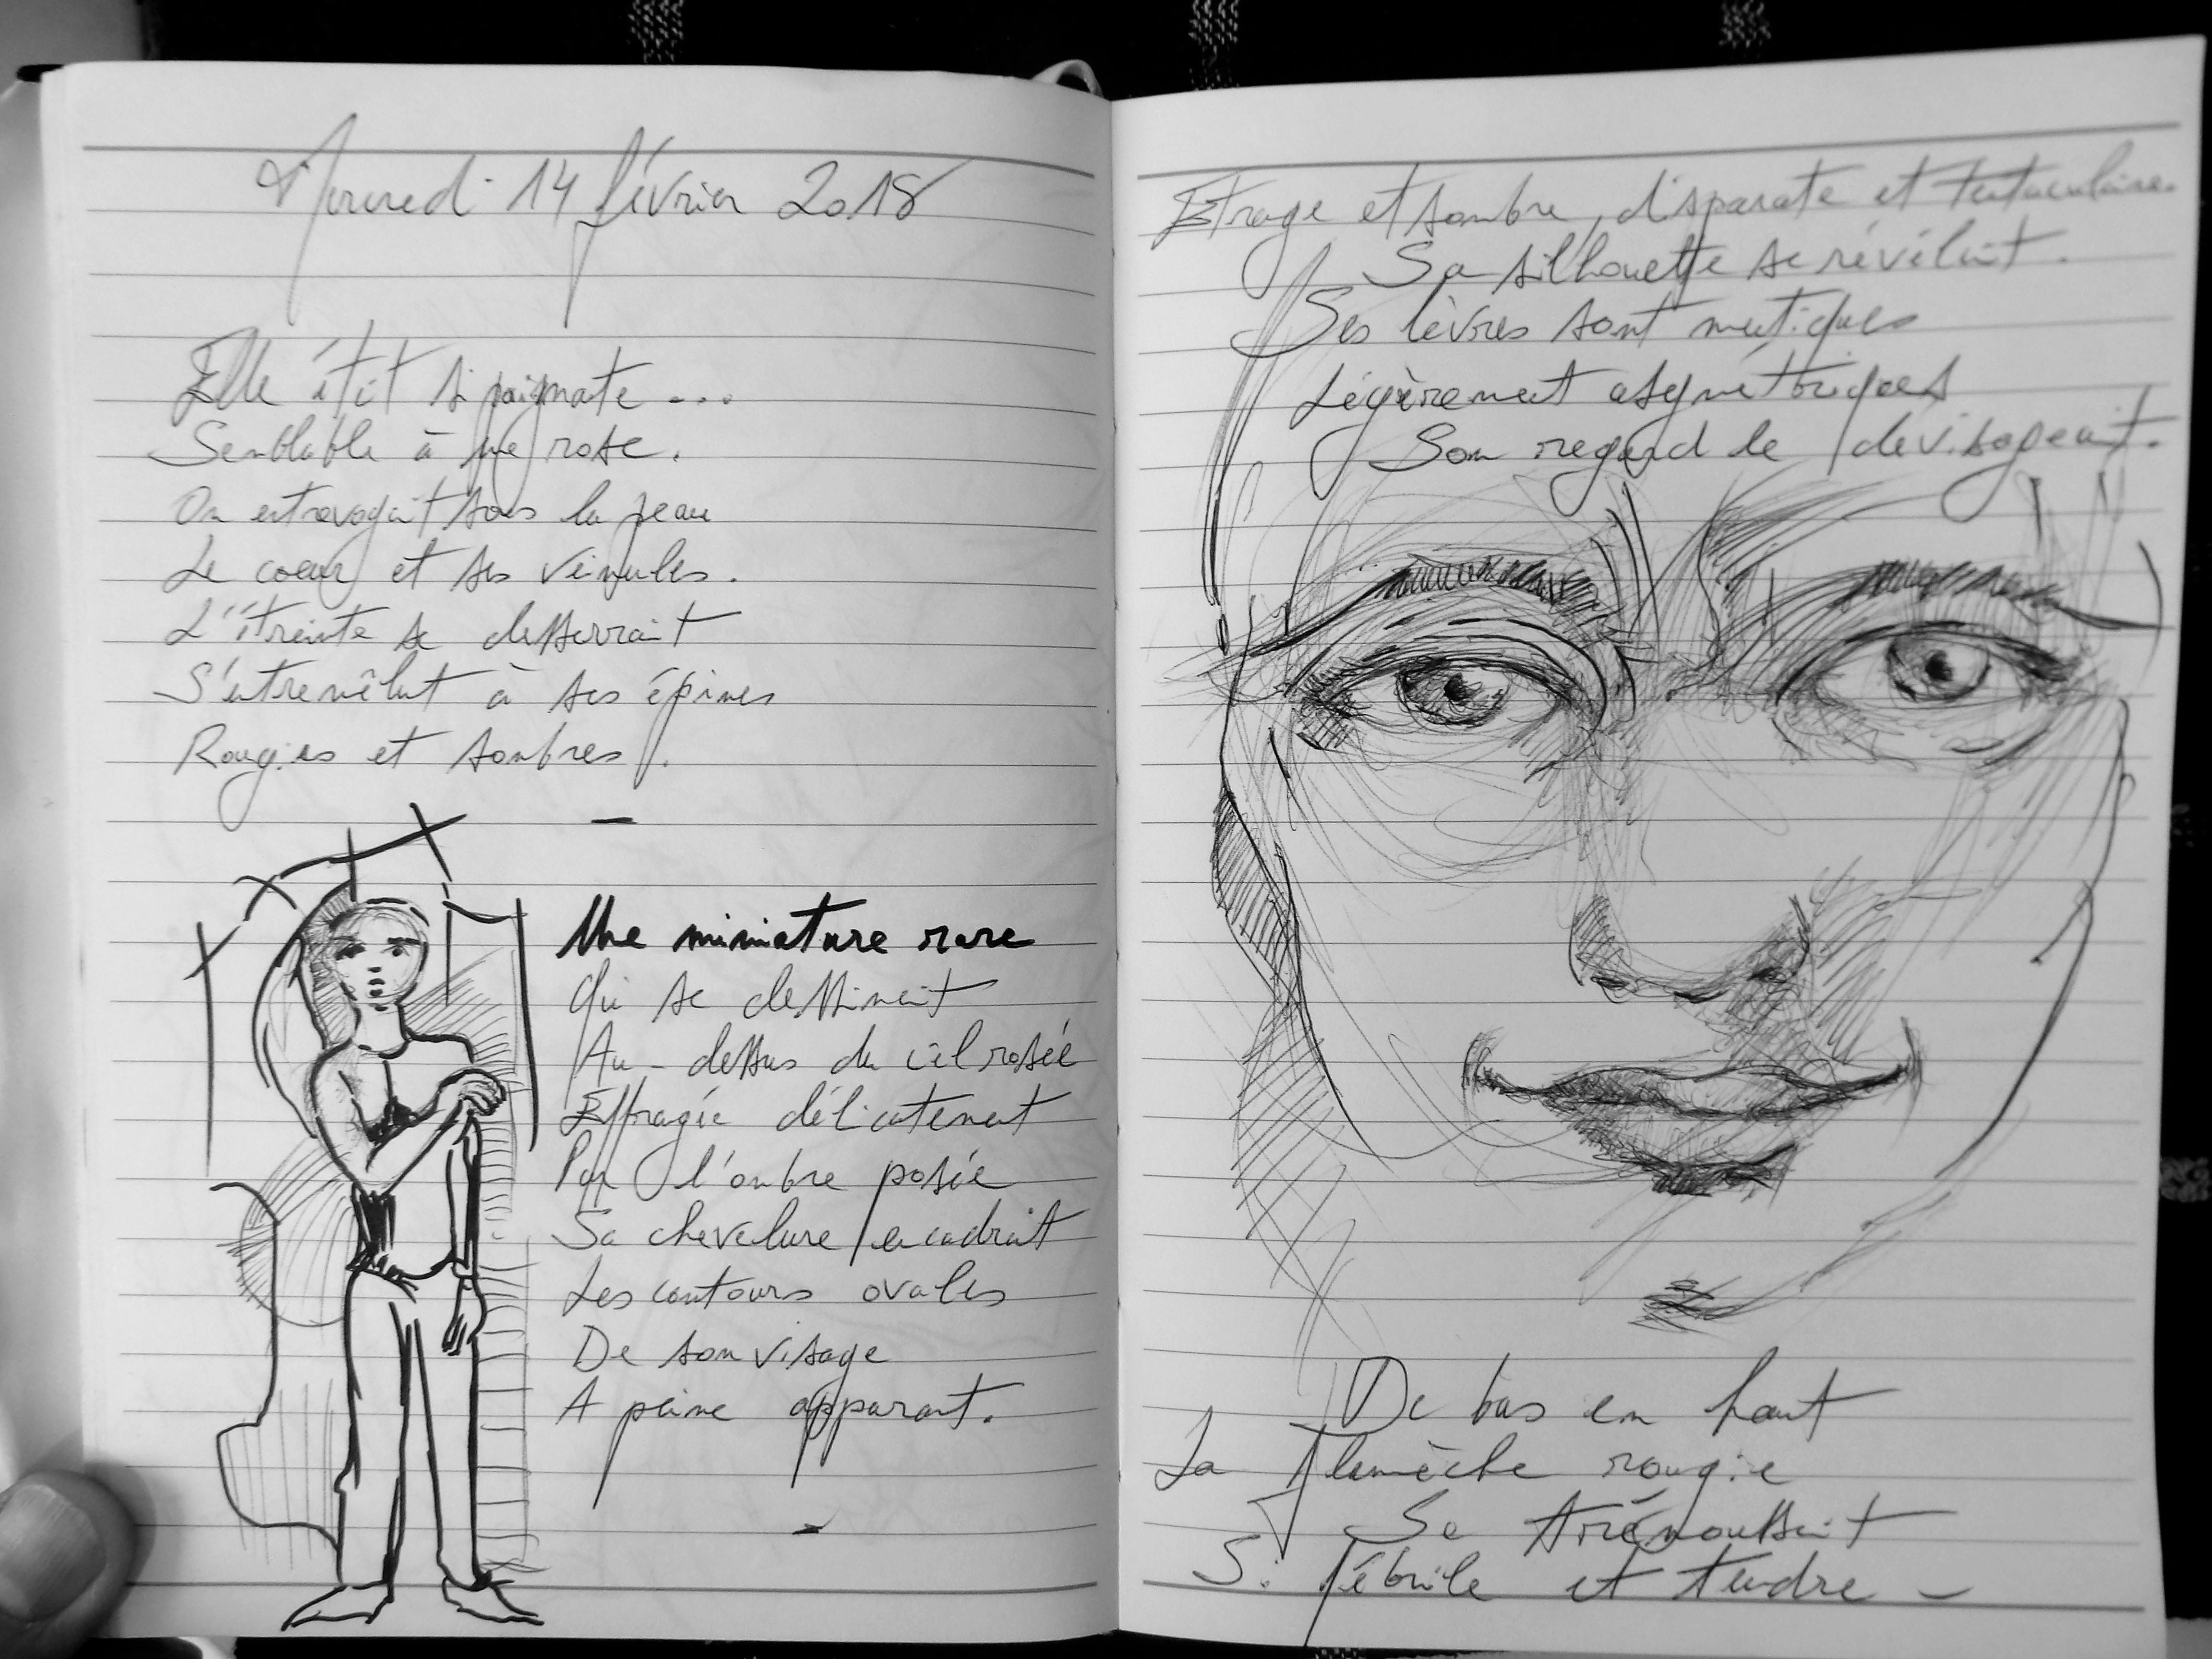 Mercredi 14 février 2018
Elle était si poignante...
Semblable à une rose.
On entrevoyait sous la peau
Le coeur et ses veinules.
L'étreinte se desserrait
S'entremêlant à ses épines
Rougies et sombres.
Une miniature rare
Qui se dessinait
Au-dessus du cil rosée
Effragée délicatement
Par l'ombre posée
Sa chevelure encadrait
Les contours ovales
De son visage
A peine apparent.
Etrage et sombre, disparate et tentaculaire.
Sa silhouette se révélait.
Ses lèvres sont mutiques
Légèrement asymétriques
Son regard le devisageait.
De bas en haut
La flamèche rougie
Se trémoussait
Si fébrile et tendre -